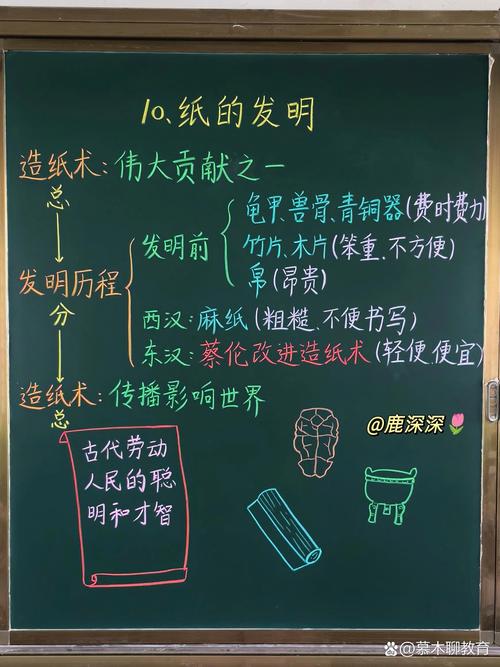 10、纸的发明
造纸术:伟大贡献之一
总
发明历程
发明前
龟甲、兽骨、青铜器(费时费力)
竹片、木片(笨重、不方便)
帛(昂贵)
分
西汉:麻纸(粗糙、不便书写)
东汉:蔡伦改进造纸术(轻便、便宜)
造纸术:传播影响世界
总
古代劳动
人民的聪
明和才智
@鹿深深
@慕木聊教育